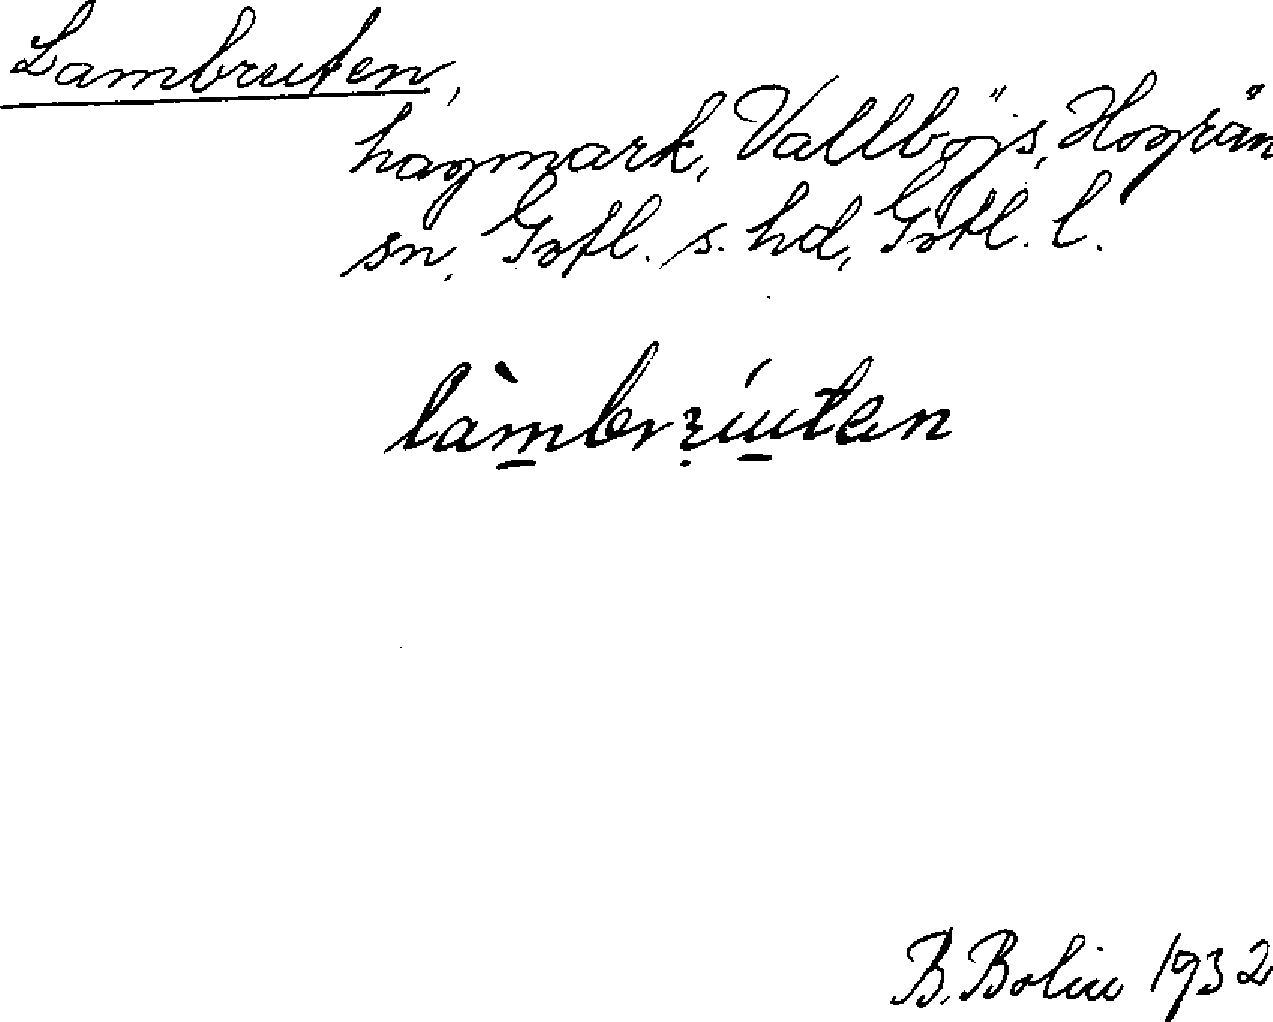 Lambruten,
hagmark, Vallböjs, Hogrän
sn, Gotl. s. hd, Gotl. l.
B. Bolin 1932